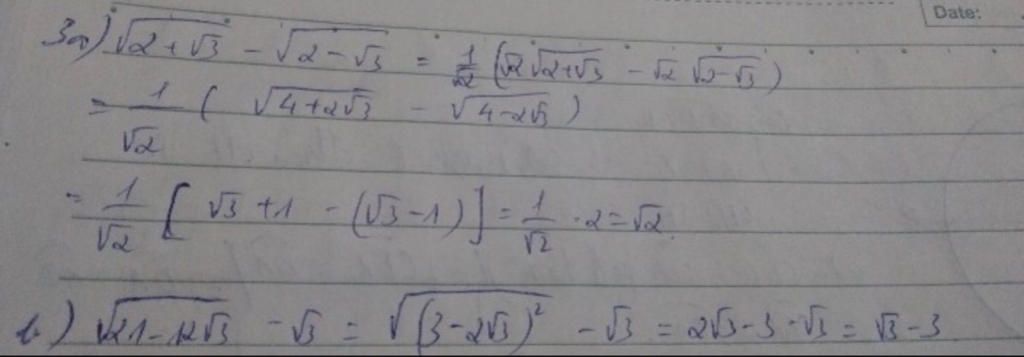 Date:
3a) √(2+√3) - √(2-√3) = 1/√2 (√2 √(2+√3) - √2 √(2-√3))
= 1/√2 ( √(4+2√3) - √(4-2√3) )
= 1/√2 [ √3 +1 - (√3-1) ] = 1/√2 · 2 = √2
b) √(21-12√3) - √3 = √((3-2√3)²) - √3 = 2√3-3-√3 = √3-3